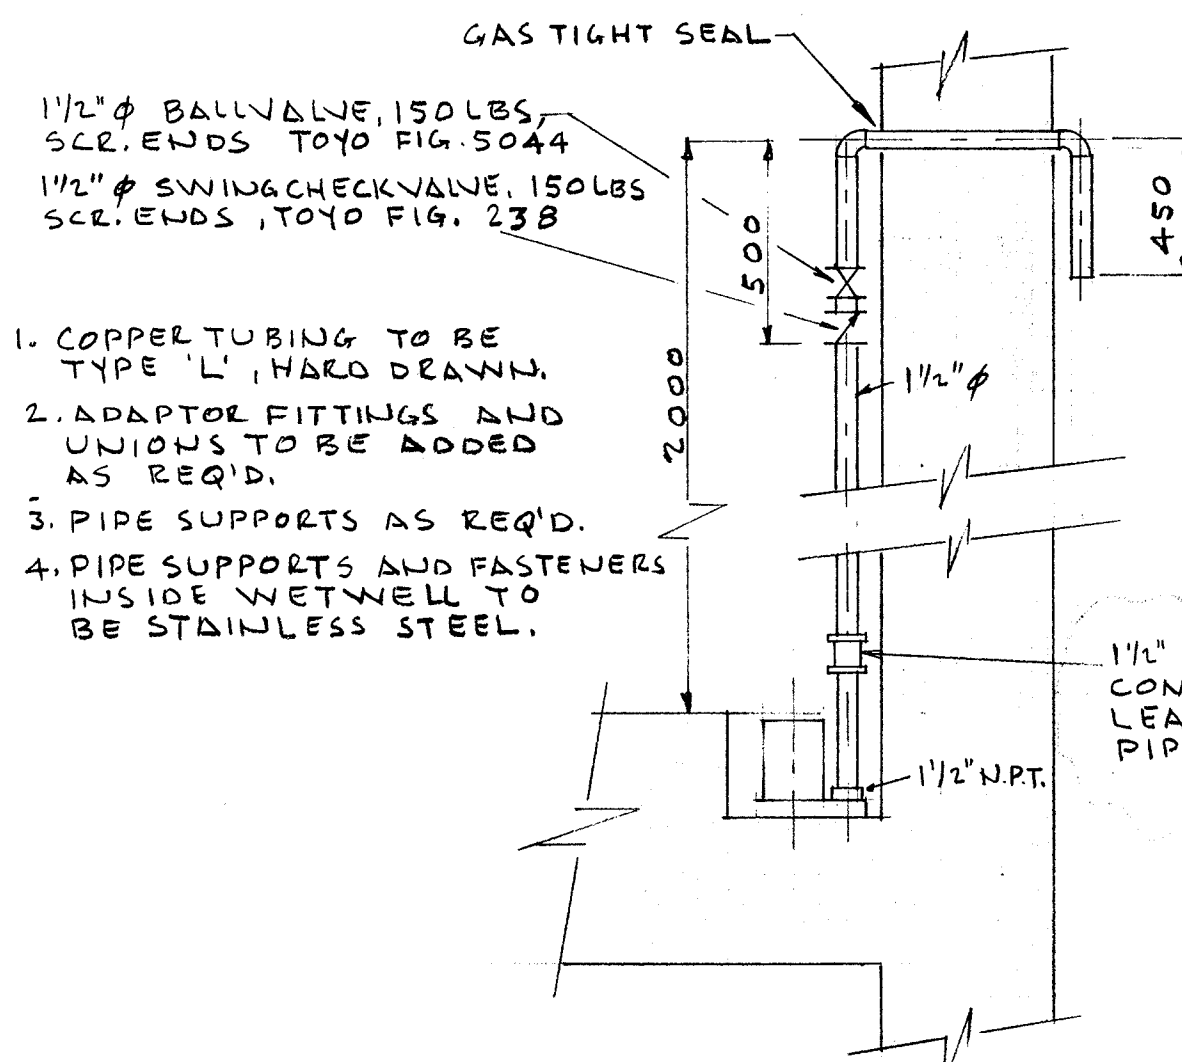 GAS TIGHT SEAL
1 1/2" φ BALLVALVE, 150 LBS,
SCR. ENDS TOYO FIG. 5044
1 1/2" φ SWINGCHECKVALVE, 150 LBS
SCR. ENDS, TOYO FIG. 238
1. COPPER TUBING TO BE
TYPE 'L', HARD DRAWN.
2. ADAPTOR FITTINGS AND
UNIONS TO BE ADDED
AS REQ'D.
3. PIPE SUPPORTS AS REQ'D.
4. PIPE SUPPORTS AND FASTENERS
INSIDE WETWELL TO
BE STAINLESS STEEL.
2000
500
450
1 1/2" φ
1 1/2"
CON
LEA
PIP
1 1/2" N.P.T.